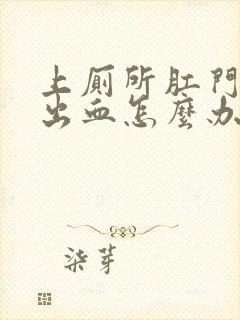 上厕所肛門
出血怎麼办
柒芽